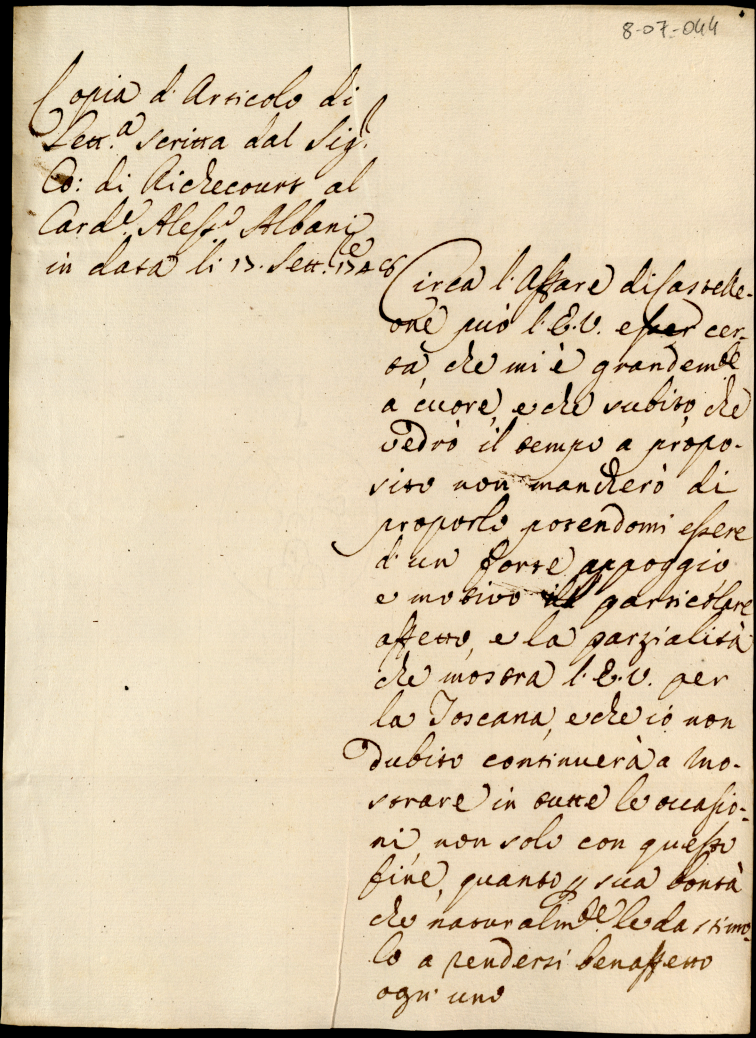 8-07-044
Copia d'Articolo di
Lett.a scritta dal Sig.r
Co: di Richecourt al
Card.e Aless.o Albani
in data li 17. Sett.e 1748
Circa l'Affare di Castelle-
one può l'E.V. esser cer-
ta, che mi è grandem.te
a cuore, e che subito, che
vedrò il tempo a propo-
sito non mancherò di
proporlo potendomi essere
d'un forte appoggio
e motivo il particolare
affetto, e la parzialità
che mostra l'E.V. per
la Toscana, e che io non
dubito continuerà a mo-
strare in tutte le occasio-
ni, non solo con questo
fine, quanto p sua bontà
che naturalm.te le da stimo-
lo a rendersi benaffetto
ogni uno